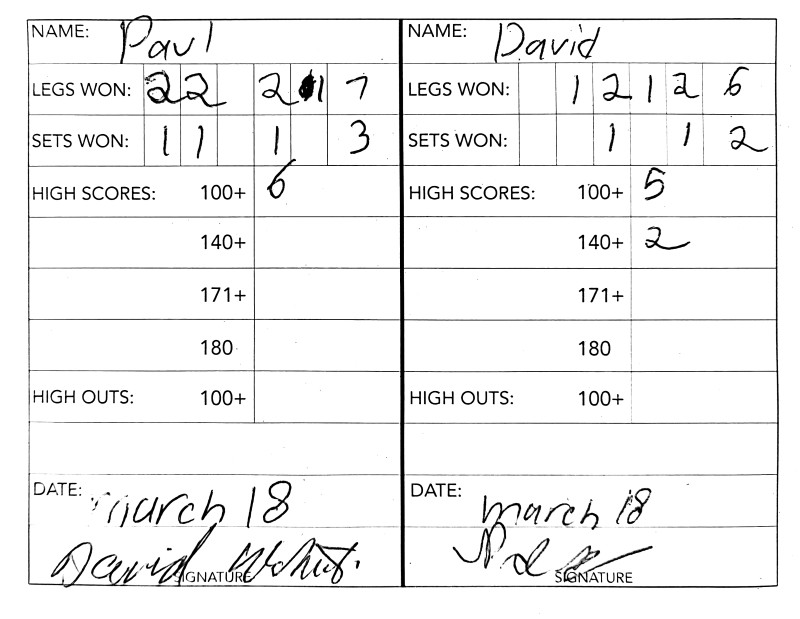 NAME: Paul
LEGS WON: 2 2 2 1 7
SETS WON: 1 1 1 3
HIGH SCORES: 100+ 6
140+
171+
180
HIGH OUTS: 100+
DATE: march 18
David
SIGNATURE
NAME: David
LEGS WON: 1 2 1 2 6
SETS WON: 1 1 2
HIGH SCORES: 100+ 5
140+ 2
171+
180
HIGH OUTS: 100+
DATE: march 18
SIGNATURE